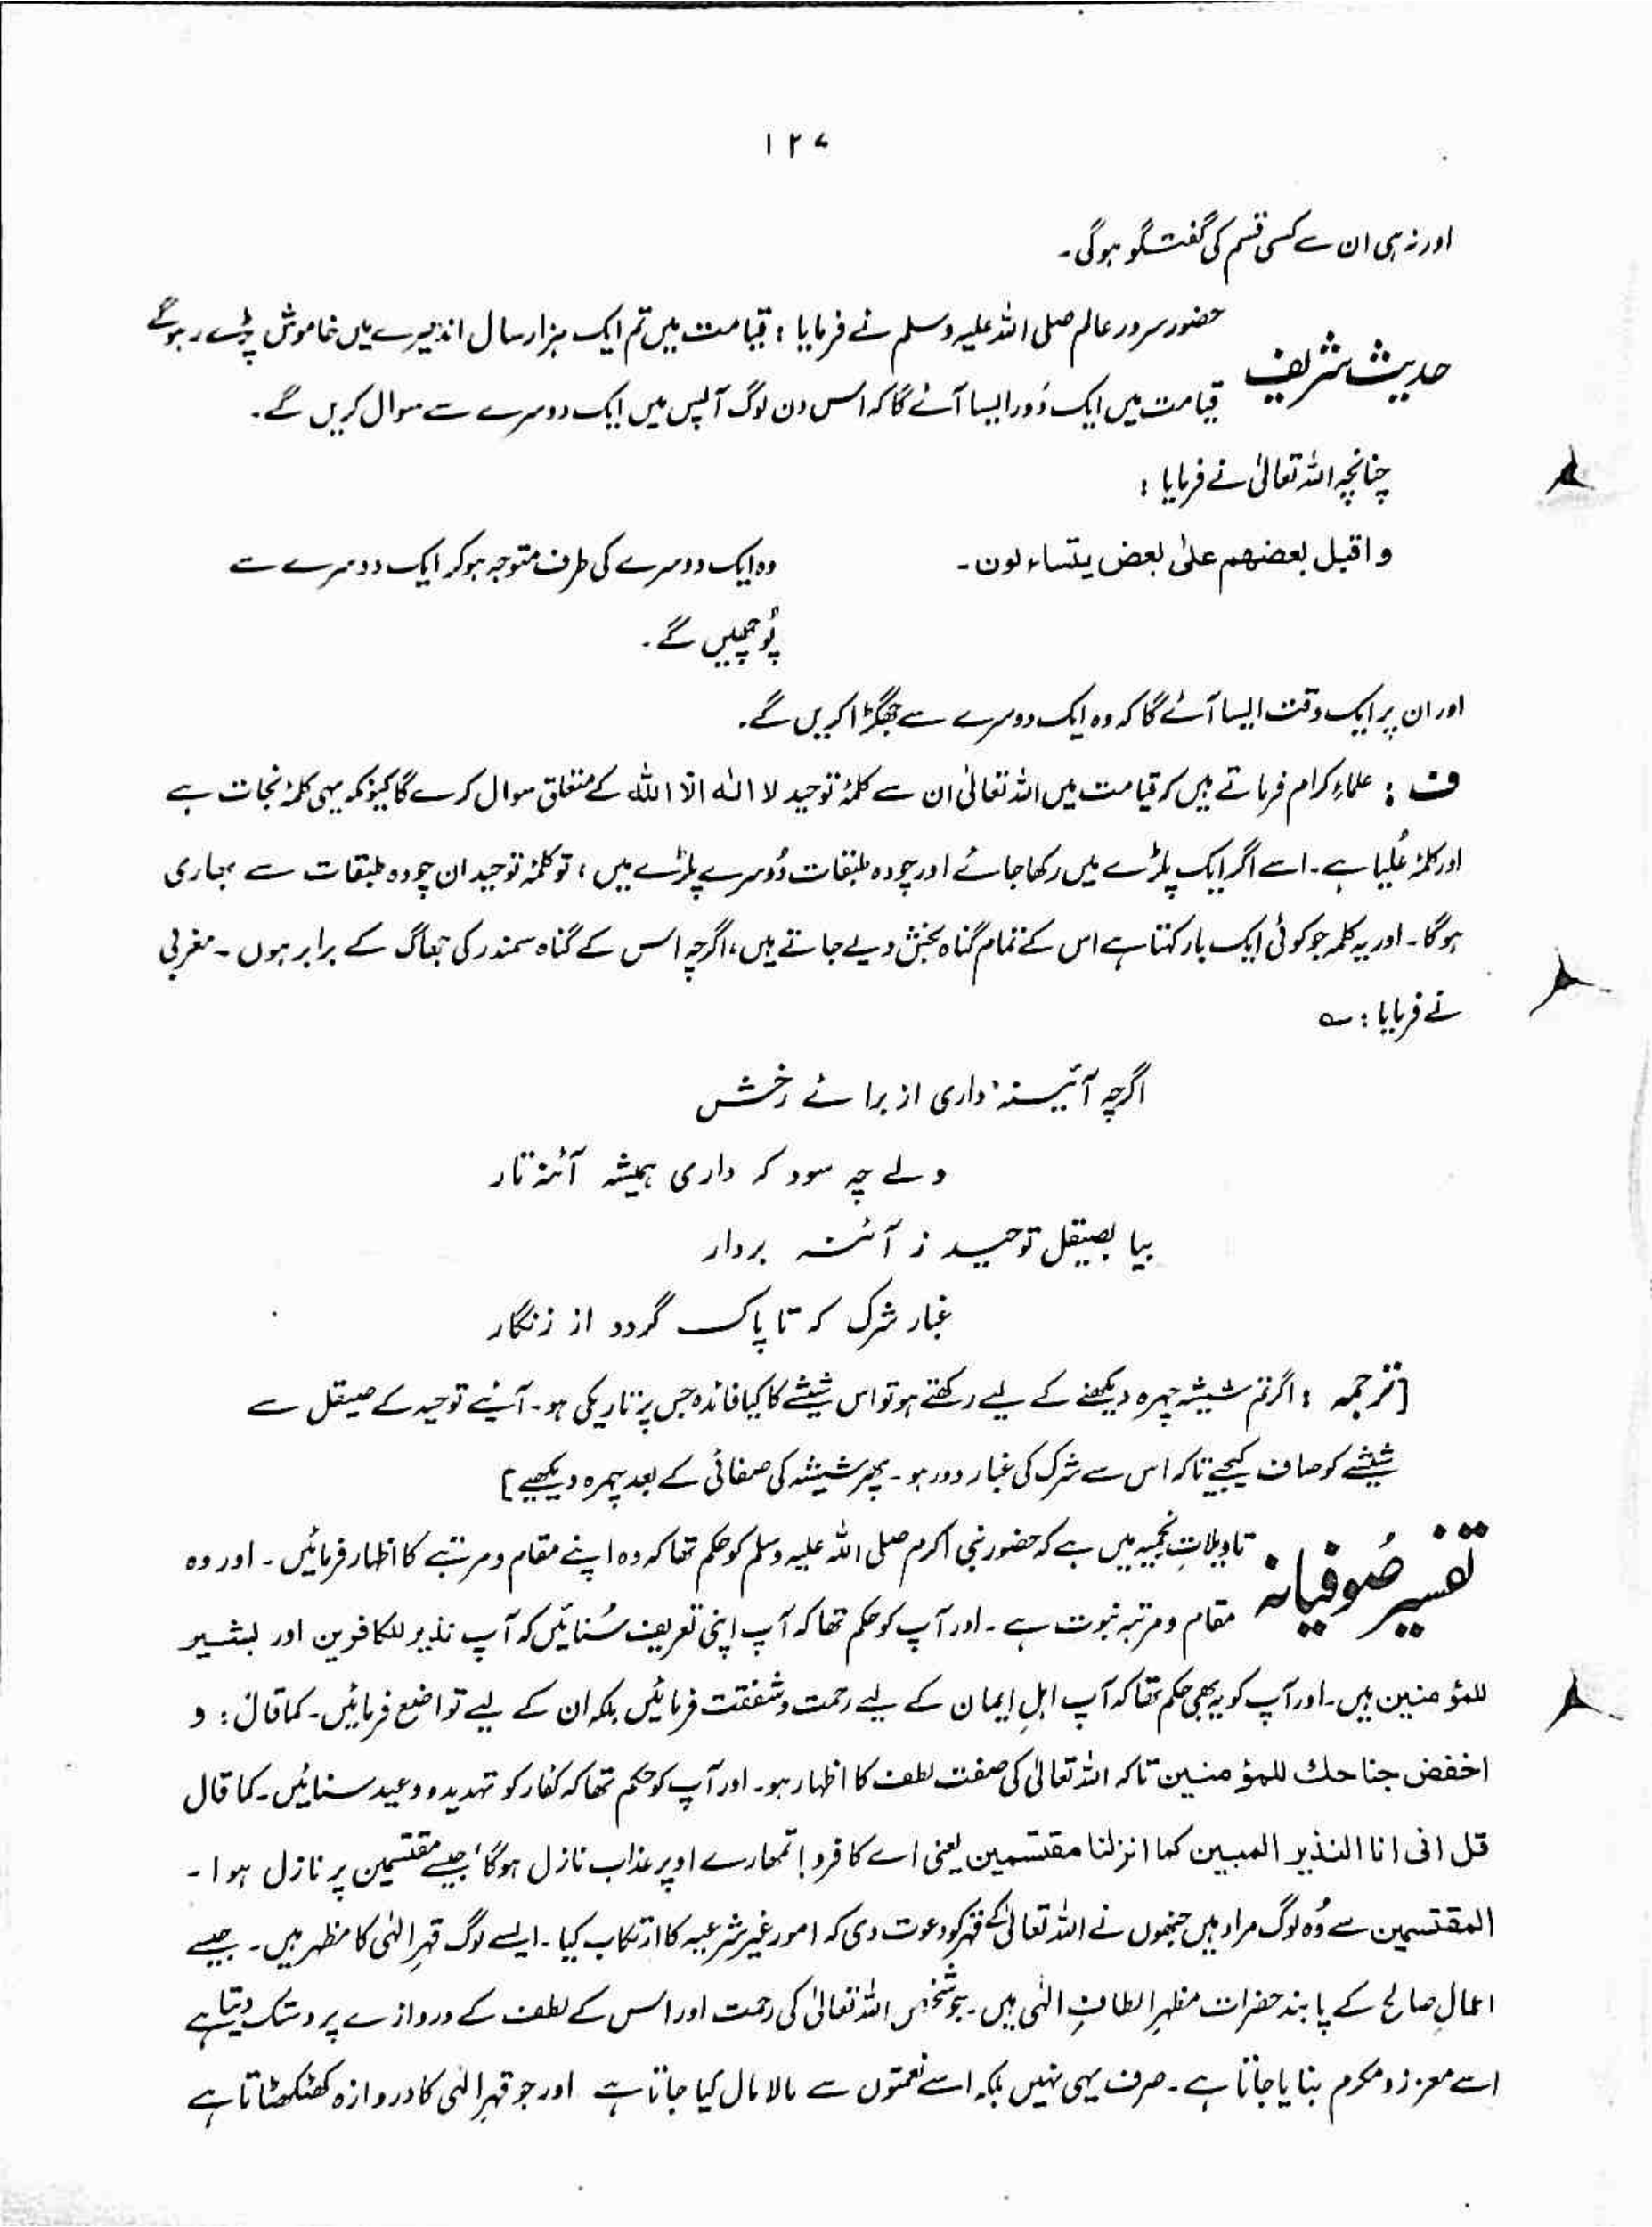 ۱۲۷
اور نہ ہی ان سے کسی قسم کی گفتگو ہوگی۔
حدیث شریف حضور سرور عالم صلی اللہ علیہ وسلم نے فرمایا : قیامت میں تم ایک ہزار سال اندھیرے میں خاموش پڑے رہو گے
قیامت میں ایک دَور ایسا آئے گا کہ اس دن لوگ آپس میں ایک دوسرے سے سوال کریں گے۔
چنانچہ اللہ تعالیٰ نے فرمایا :
و اقبل بعضھم علیٰ بعض یتساء لون۔ وہ ایک دوسرے کی طرف متوجہ ہو کر ایک دوسرے سے
پُوچھیں گے۔
اور ان پر ایک وقت ایسا آئے گا کہ وہ ایک دوسرے سے جھگڑا کریں گے۔
ف : علماءِ کرام فرماتے ہیں کہ قیامت میں اللہ تعالیٰ ان سے کلمۂ توحید لا الٰہ الّا اللہ کے متعلق سوال کرے گا کیونکہ یہی کلمۂ نجات ہے
اور کلمۂ عُلیا ہے۔ اسے اگر ایک پلڑے میں رکھا جائے اور چودہ طبقات دُوسرے پلڑے میں ، تو کلمۂ توحید ان چودہ طبقات سے بھاری
ہوگا۔ اور یہ کلمہ جو کوئی ایک بار کہتا ہے اس کے تمام گناہ بخش دیے جاتے ہیں، اگرچہ اس کے گناہ سمندر کی جھاگ کے برابر ہوں ۔ مغربی
نے فرمایا : ؎
اگرچہ آئینہ داری از برائے رخش
ولے چہ سود کہ داری ہمیشہ آئنہ تار
بیا بصیقل توحید ز آئنہ بردار
غبار شرک کہ تا پاک گردد از زنگار
[ترجمہ : اگر تم شیشہ چہرہ دیکھنے کے لیے رکھتے ہو تو اس شیشے کا کیا فائدہ جس پر تاریکی ہو۔ آئیے توحید کے صیقل سے
شیشے کو صاف کیجیے تاکہ اس سے شرک کی غبار دور ہو۔ پھر شیشہ کی صفائی کے بعد چہرہ دیکھیے]
تفسیر صُوفیانہ تاویلاتِ نجمیہ میں ہے کہ حضور نبی اکرم صلی اللہ علیہ وسلم کو حکم تھا کہ وہ اپنے مقام و مرتبے کا اظہار فرمائیں ۔ اور وہ
مقام و مرتبہ نبوت ہے ۔ اور آپ کو حکم تھا کہ آپ اپنی تعریف سُنائیں کہ آپ نذیر للکافرین اور بشیر
للمؤمنین ہیں۔ اور آپ کو یہ بھی حکم تھا کہ آپ اہلِ ایمان کے لیے رحمت و شفقت فرمائیں بلکہ ان کے لیے تواضع فرمائیں۔ کما قال : و
اخفض جناحك للمؤمنین تاکہ اللہ تعالیٰ کی صفت لطف کا اظہار ہو۔ اور آپ کو حکم تھا کہ کفار کو تہدید و وعید سنائیں۔ کما قال
قل انی انا النذیر المبین کما انزلنا مقتسمین یعنی اے کافرو! تمھارے اوپر عذاب نازل ہوگا' جیسے مقتسمین پر نازل ہوا ۔
المقتسمین سے وُہ لوگ مراد ہیں جنھوں نے اللہ تعالیٰ کے قہر کو دعوت دی کہ امور غیر شرعیہ کا ارتکاب کیا ۔ ایسے لوگ قہرِ الٰہی کا مظہر ہیں ۔ جیسے
اعمالِ صالح کے پابند حضرات مظہرِ الطافِ الٰہی ہیں۔ جو شخص اللہ تعالیٰ کی رحمت اور اس کے لطف کے دروازے پر دستک دیتا ہے
اسے معزز و مکرم بنایا جاتا ہے ۔ صرف یہی نہیں بلکہ اسے نعمتوں سے مالا مال کیا جاتا ہے اور جو قہرِ الٰہی کا دروازہ کھٹکھٹاتا ہے